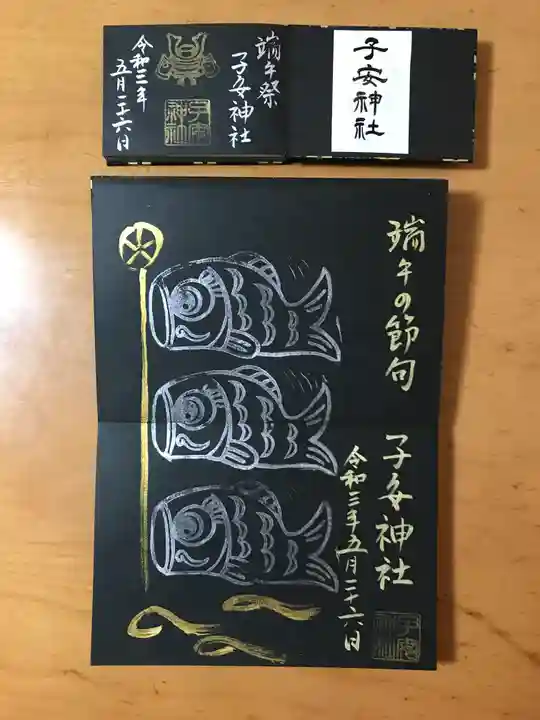 端午祭
子安神社
令和三年
五月二十六日
子安神社
子安神社
端午の節句
子安神社
令和三年五月二十六日
子安
神社